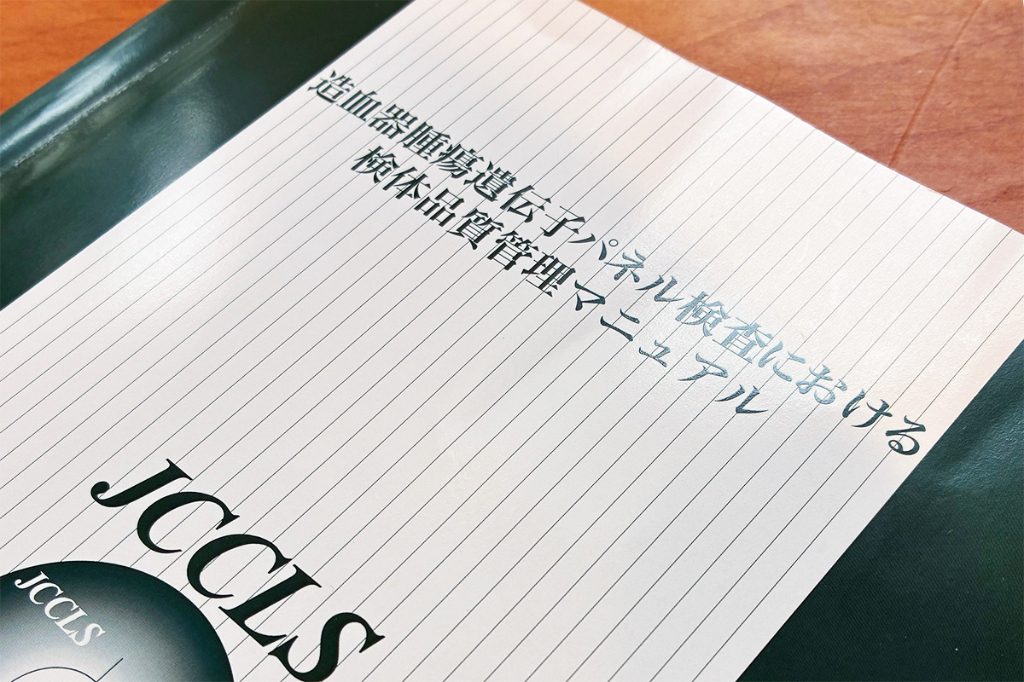 造血器腫瘍遺伝子パネル検査における
検体品質管理マニュアル
JCCLS
JCCLS